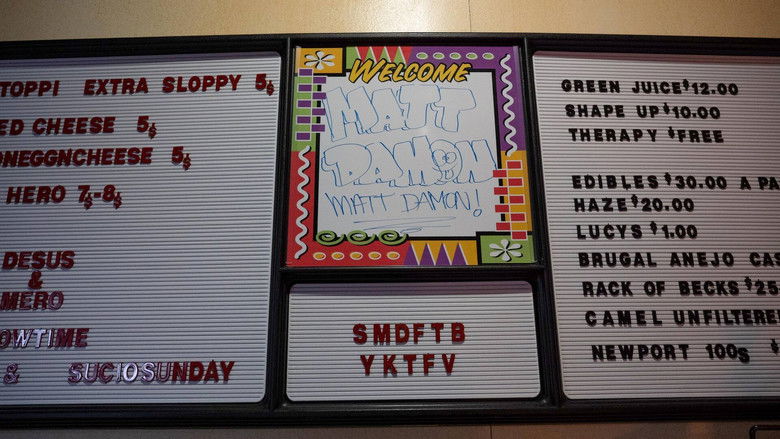 TOPPI EXTRA SLOPPY 5$
ED CHEESE 5$
ONEGGNCHEESE 5$
HERO 7$-8$
DESUS
&
MERO
OWTIME
& SUCIOSUNDAY
WELCOME
MATT
DAMON
MATT DAMON!
SMDFTB
YKTFV
GREEN JUICE $12.00
SHAPE UP $10.00
THERAPY $FREE
EDIBLES $30.00 A PA
HAZE $20.00
LUCYS $1.00
BRUGAL ANEJO CAS
RACK OF BECKS $25
CAMEL UNFILTERE
NEWPORT 100s $